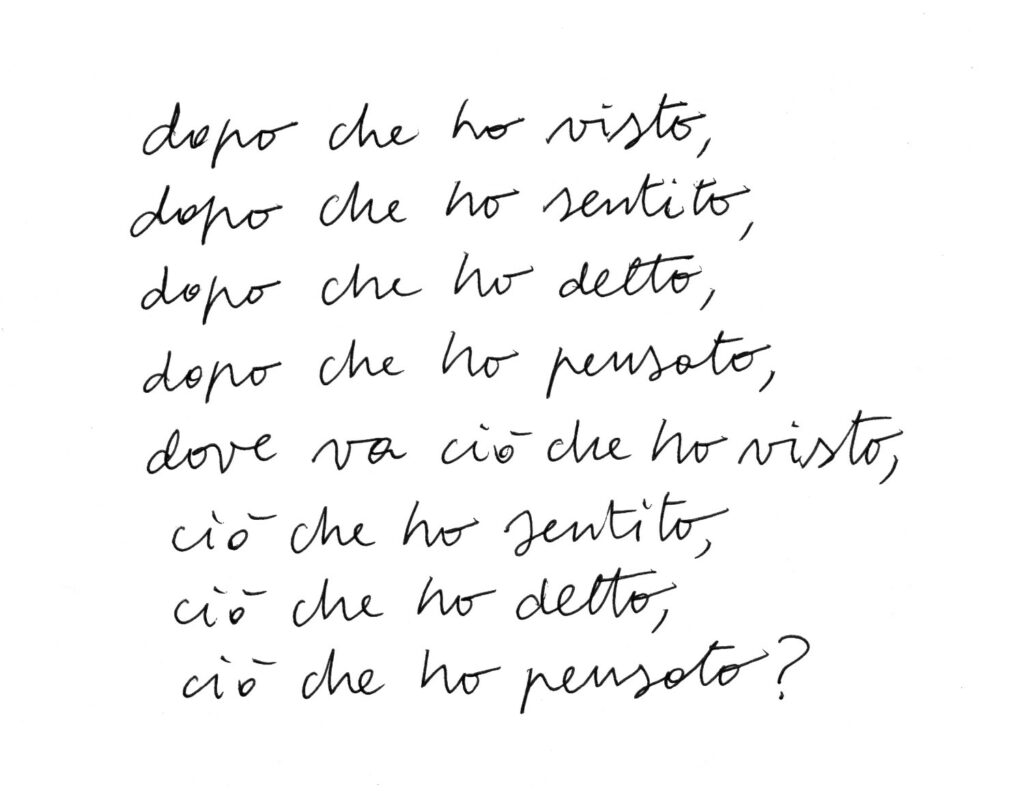 dopo che ho visto,
dopo che ho sentito,
dopo che ho detto,
dopo che ho pensato,
dove va ciò che ho visto,
ciò che ho sentito,
ciò che ho detto,
ciò che ho pensato?